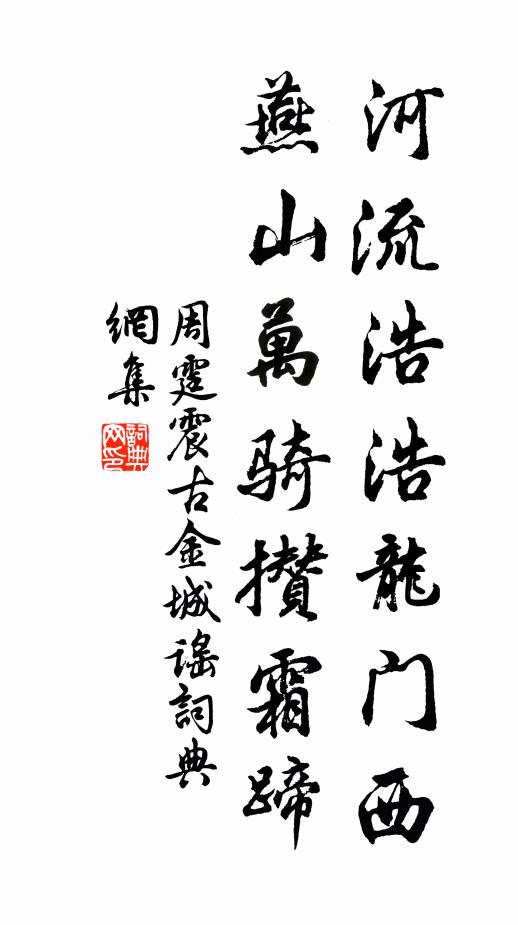 河流浩浩龍门西
燕山萬騎攢霜蹄
周霆震古金城謡詞典
網集
詞典
网印